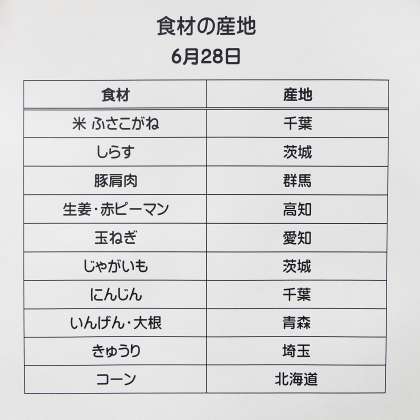 食材の産地
6月28日
食材 産地
米 ふさこがね 千葉
しらす 茨城
豚肩肉 群馬
生姜・赤ピーマン 高知
玉ねぎ 愛知
じゃがいも 茨城
にんじん 千葉
いんげん・大根 青森
きゅうり 埼玉
コーン 北海道